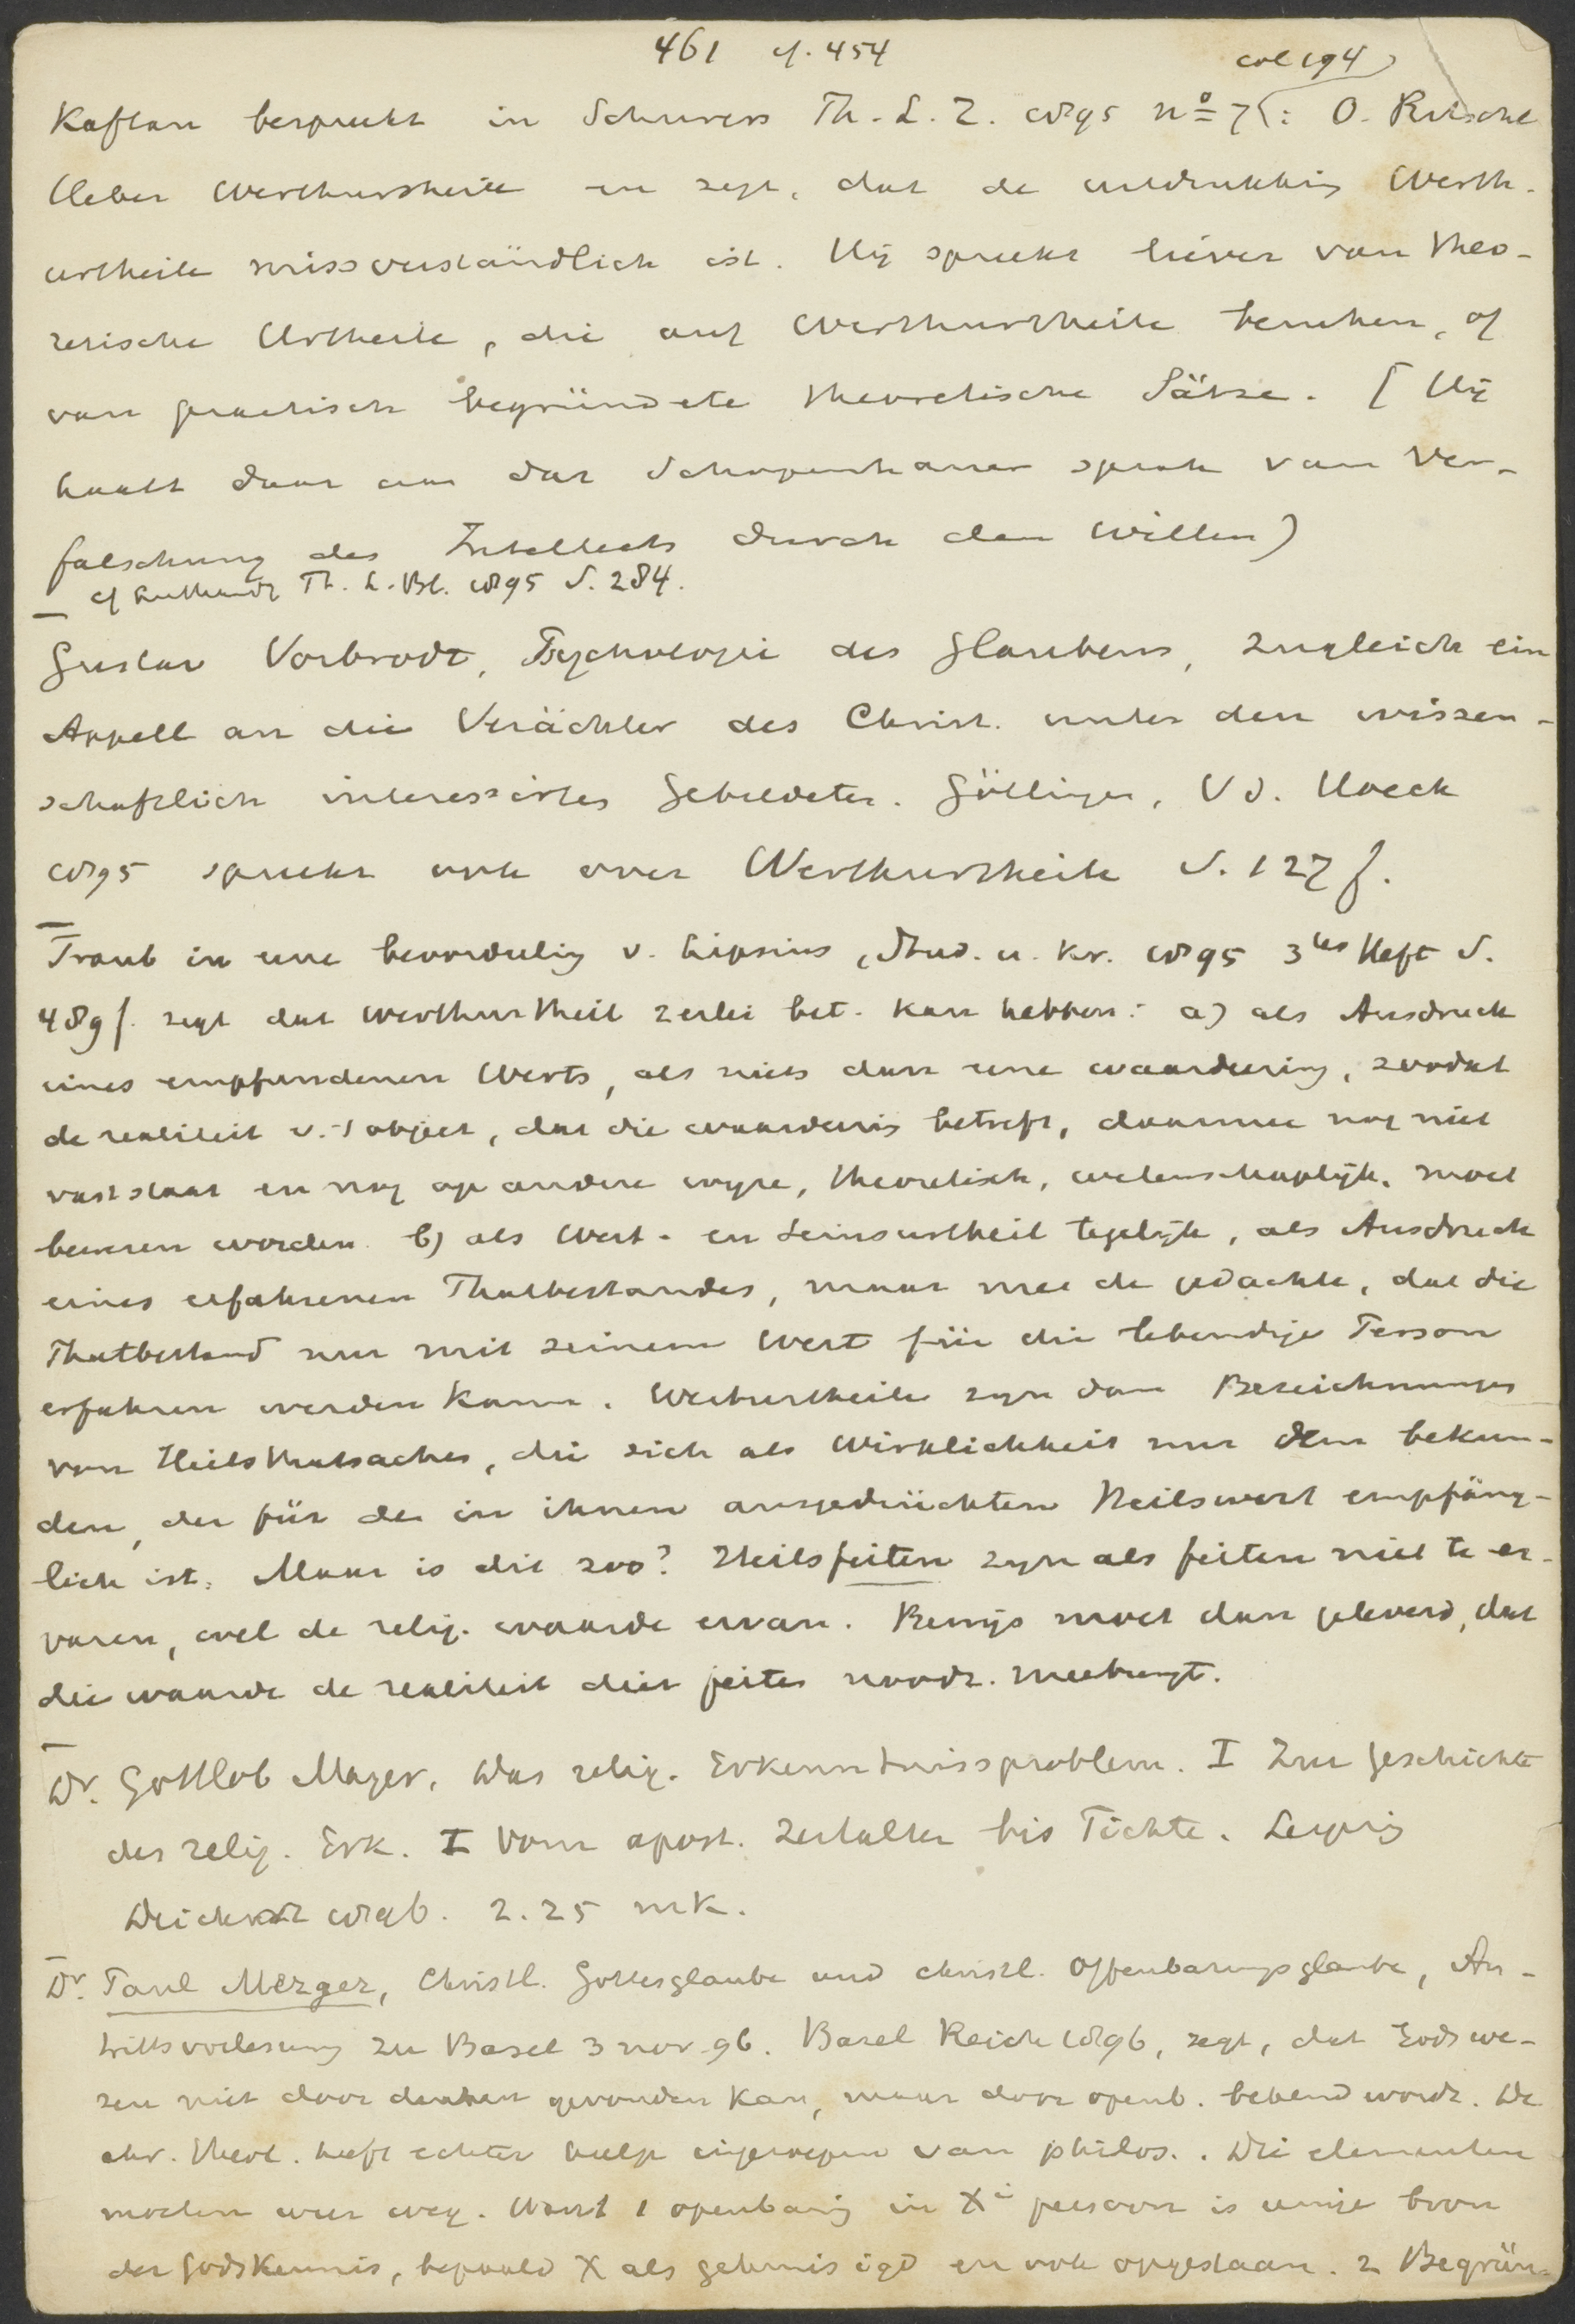 461 cf. 454
col 194
Kaftan bespreekt in Schurers Th. L. Z. 1895 no 7: O. Ritschl
Ueber Werthurtheile en zegt, dat de uitdrukking Werth-
urtheile missverständlich ist. Hij spreekt liever van theo-
retische Urtheile, die auf Werthurtheile beruhen, of
van practisch begründete theoretische Sätze. [Hij
haalt daar aan dat Schopenhauer sprak van Ver-
falschung des Intellects durch den Willen)
cf Luthardt Th. L. Bl. 1895 S. 284.
Gustav Vorbrodt, Psychologie des Glaubens, zugleich ein
Appell an die Verächter des Christ. unter den wissen-
schaftlich interessirten Gebildeten. Göttingen, V d. Hoeck
1895 spreekt ook over Werthurtheile S. 127 f.
Traub in eene beoordeeling v. Lipsius, Stud. u. Kr. 1895 3tes Heft S.
489 f. zegt dat Werthurtheil 2erlei bet. kan hebben: a) als Ausdruck
eines empfundenen Werts, als niets dan eene waardeering, zoodat
de realiteit v. 't object, dat die waardeering betreft, daarmee nog niet
vaststaat en nog op andere wyze, theoretisch, wetenschaplijk, moet
bewezen worden. b) als Wert- en Seinsurtheil tegelijk, als Ausdruck
eines erfahrenen Thatbestandes, maar mee de gedachte, dat die
Thatbestand nur mit seinem Wert für die lebendige Person
erfahren werden kann. Werturtheile zyn dan Bezeichnungen
von Heilsthatsachen, die sich als Wirklichkeit nur dem bekun-
den, der für den in ihnen ausgedrückten Heilswert empfäng-
lich ist. Maar is dit zoo? Heilsfeiten zyn als feiten niet te er-
varen, wel de relig. waarde ervan. Bewijs moet dan geleverd, dat
die waarde de realiteit dier feiten noodz. meebrengt.
Dr. Gottlob Mayer, Das relig. Erkenntnissproblem. I Zur Geschichte
des relig. Erk. I Vom apost. Zeitalter bis Fichte. Leipzig
Deichert 1896. 2.25 mk.
Dr. Paul Mezger, Christl. Gottesglaube und christl. Offenbarungsglaube, An-
trittsvorlesung zu Basel 3 nov. 96. Basel Reich 1896, zegt, dat Gods we-
zen niet door denken gevonden kan, maar door openb. bekend wordt. De
chr. theol. heeft echter hulp ingeroepen van philos.. Die elementen
moeten weer weg. Want 1 openbaring in Xi persoon is eenige bron
der Godskennis, bepaald X als gekruisigd en ook opgestaan. 2 Begrün-